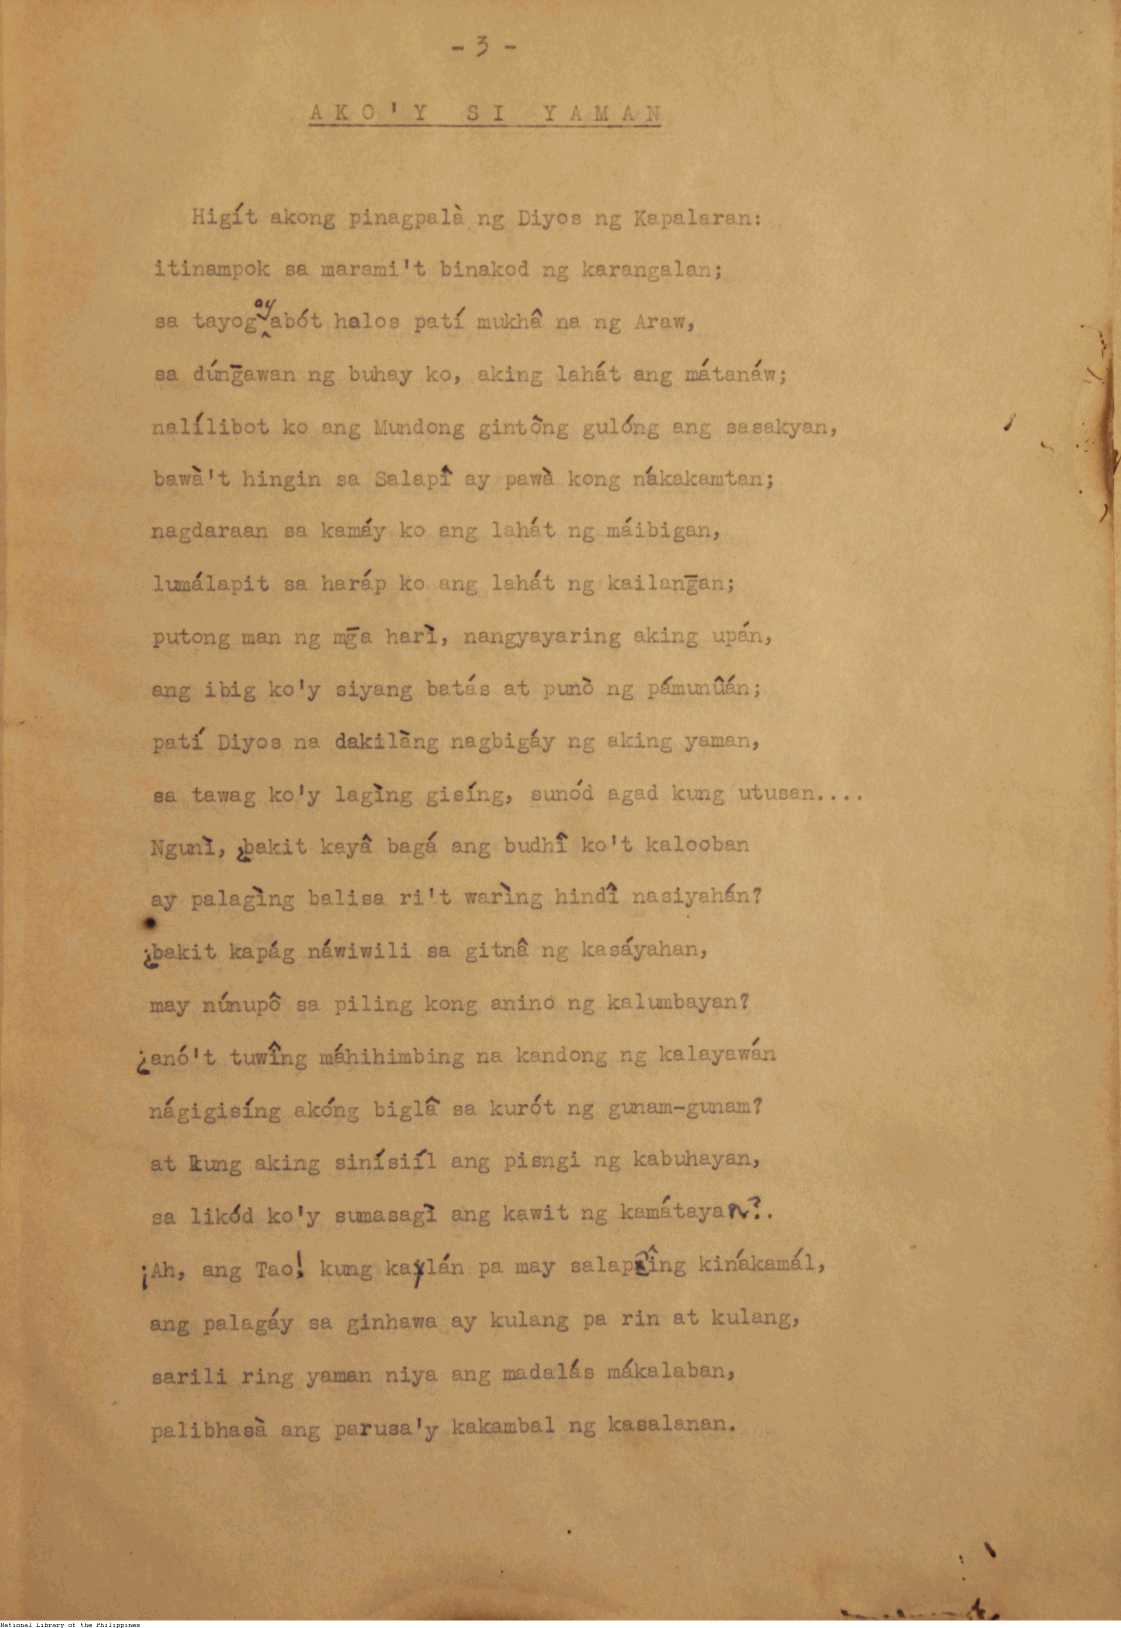 - 3 -
AKO'Y SI YAMAN
Higít akong pinagpalà ng Diyos ng Kapalaran:
itinampok sa marami't binakod ng karangalan;
sa tayog ay abót halos patí mukhâ na ng Araw,
sa dúng̃awan ng buhay ko, aking lahát ang mátanáw;
nalílibot ko ang Mundong gintông gulóng ang sasakyan,
bawà't hingin sa Salapî ay pawà kong nákakamtan;
nagdaraan sa kamáy ko ang lahát ng máibigan,
lumálapit sa haráp ko ang lahát ng kailang̃an;
putong man ng mg̃a harì, nangyayaring aking upán,
ang ibig ko'y siyang batás at punò ng pámunûán;
patí Diyos na dakilàng nagbigáy ng aking yaman,
sa tawag ko'y lagìng gisíng, sunód agad kung utusan....
Ngunì, ¿bakit kayâ bagá ang budhî ko't kalooban
ay palagìng balisa ri't warìng hindî nasiyahán?
¿bakit kapág náwiwili sa gitnâ ng kasáyahan,
may núnupô sa piling kong anino ng kalumbayan?
¿anó't tuwîng máhihimbing na kandong ng kalayawán
nágigisíng akóng biglâ sa kurót ng gunam-gunam?
at kung aking sinísiíl ang pisngi ng kabuhayan,
sa likód ko'y sumasagì ang kawit ng kamátayan?.
¡Ah, ang Tao! kung kaylán pa may salapîng kinákamál,
ang palagáy sa ginhawa ay kulang pa rin at kulang,
sarili ring yaman niya ang madalás mákalaban,
palibhasà ang parusa'y kakambal ng kasalanan.
National Library of the Philippines